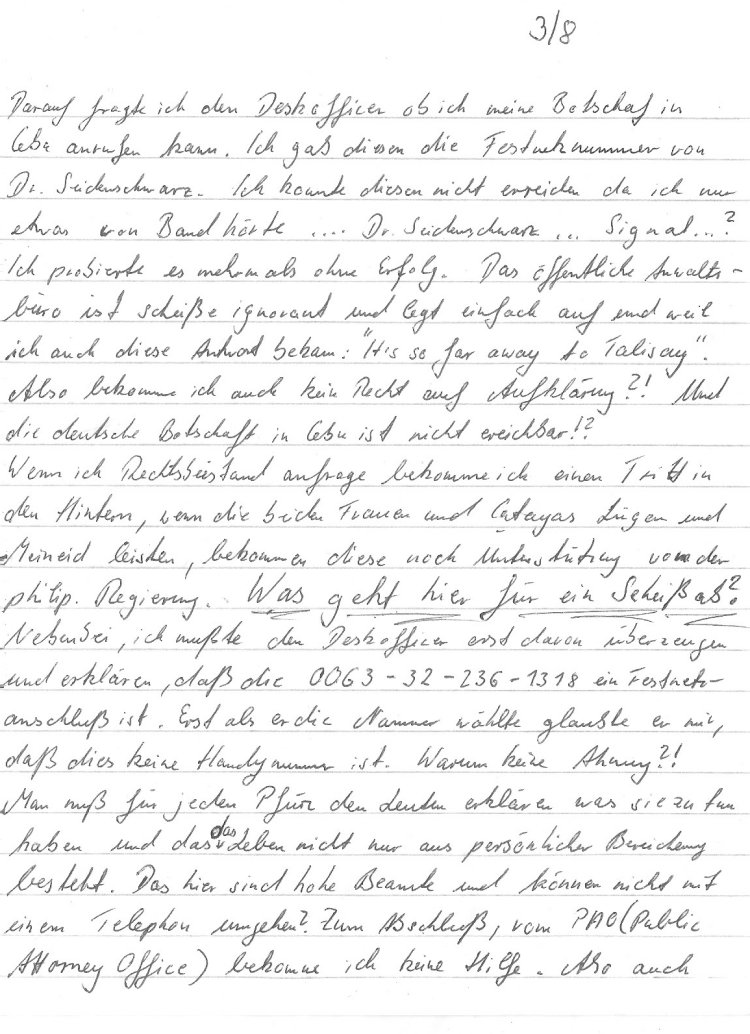 3/8
Darauf fragte ich den Deskofficer ob ich meine Botschaf in
Cebu anrufen kann. Ich gab diesen die Festnetznummer von
Dr. Seidenschwarz. Ich konnte diesen nicht erreichen da ich nur
etwas von Band hörte .... Dr. Seidenschwarz ... Signal...?
Ich probierte es mehrmals ohne Erfolg. Das öffentliche Anwalts-
büro ist scheiße ignorant und legt einfach auf und weil
ich auch diese Antwort bekam: "It's so far away to Talisay".
Also bekomme ich auch kein Recht auf Aufklärung?! Und
die deutsche Botschaft in Cebu ist nicht ereichbar!?
Wenn ich Rechtsbeistand anfrage bekomme ich einen Tritt in
den Hintern, wenn die beiden Frauen und Catayas Lügen und
Meineid leisten, bekommen diese noch Unterstützung von der
philip. Regierung. Was geht hier für ein Scheiß ab?
Nebenbei, ich mußte den Deskofficer erst davon überzeugen
und erklären, daß die 0063-32-236-1318 ein Festnetz-
anschluß ist. Erst als er die Nummer wählte glaubte er mir,
daß dies keine Handynummer ist. Warum keine Ahnung?!
Man muß für jeden Pfurz den Leuten erklären was sie zu tun
haben und das das Leben nicht nur aus persönlicher Bereicherung
besteht. Das hier sind hohe Beamte und können nicht mit
einem Telephon umgehen? Zum Abschluß, vom PAO (Public
Attorney Office) bekomme ich keine Hilfe. Also auch